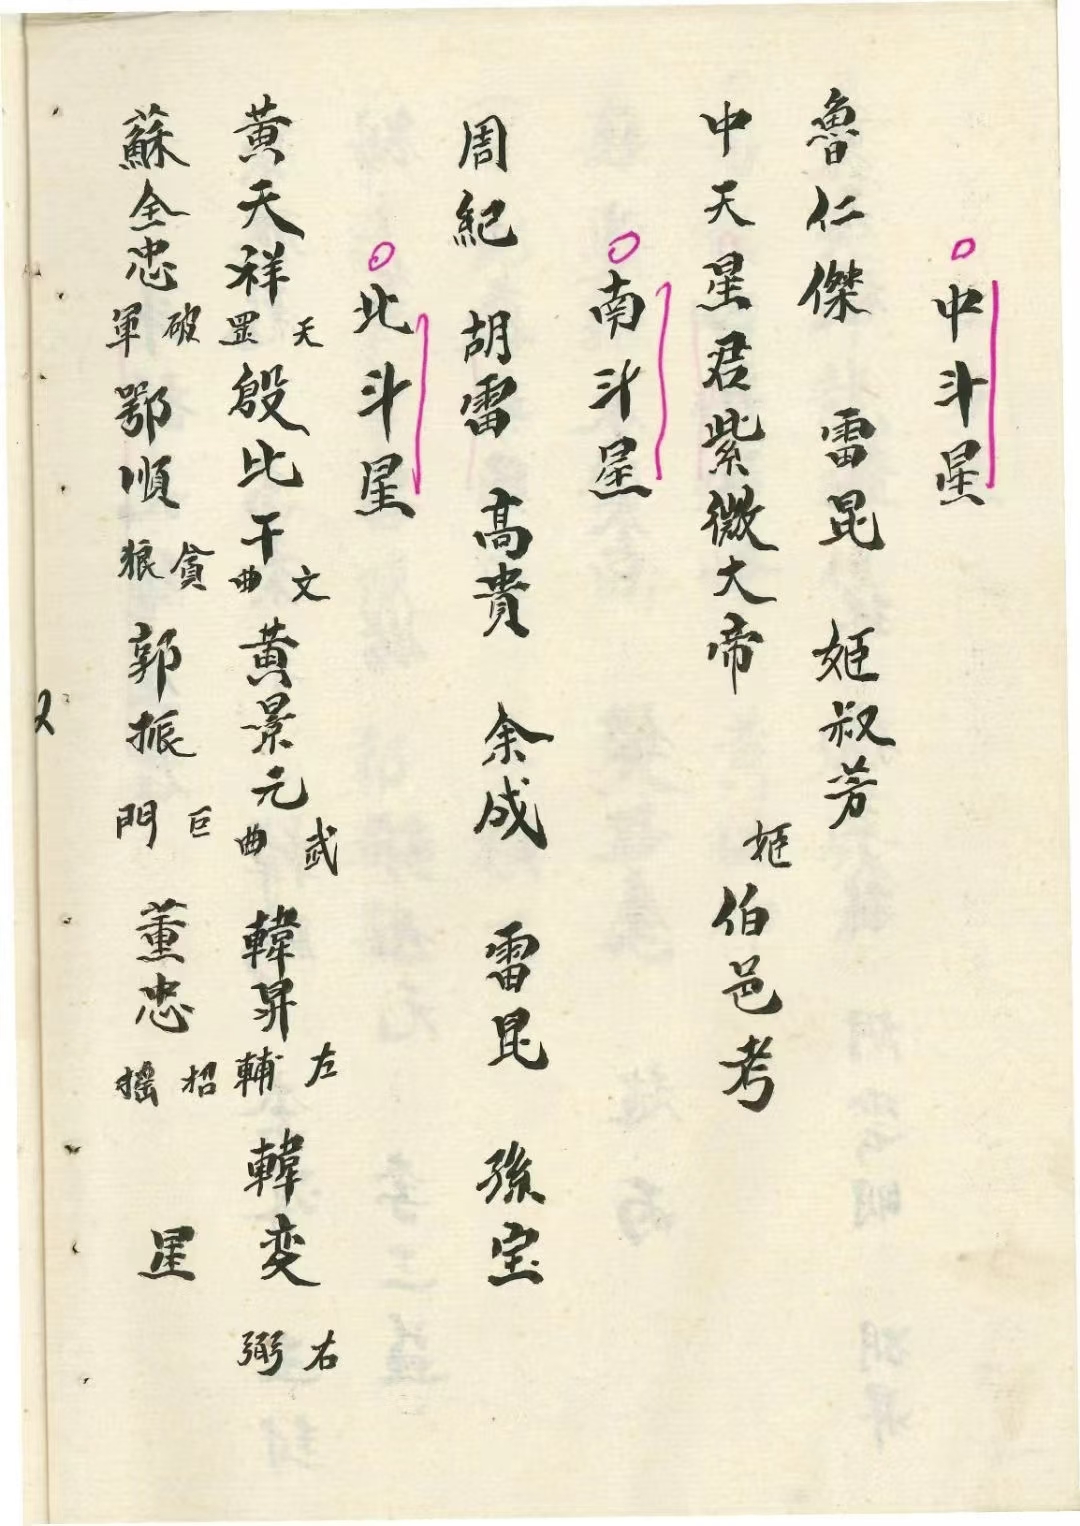 中斗星
魯仁傑 雷昆 姬叔芳
中天星君紫微大帝 姬伯邑考
南斗星
周紀 胡雷 高貴 余成 雷昆 孫宝
北斗星
黄天祥 天罡 殷比干 文曲 黄景元 武曲 韓昇 左輔 韓変 右弼
蘇全忠 破軍 鄂順 貪狼 郭振 巨門 董忠 招摇 星